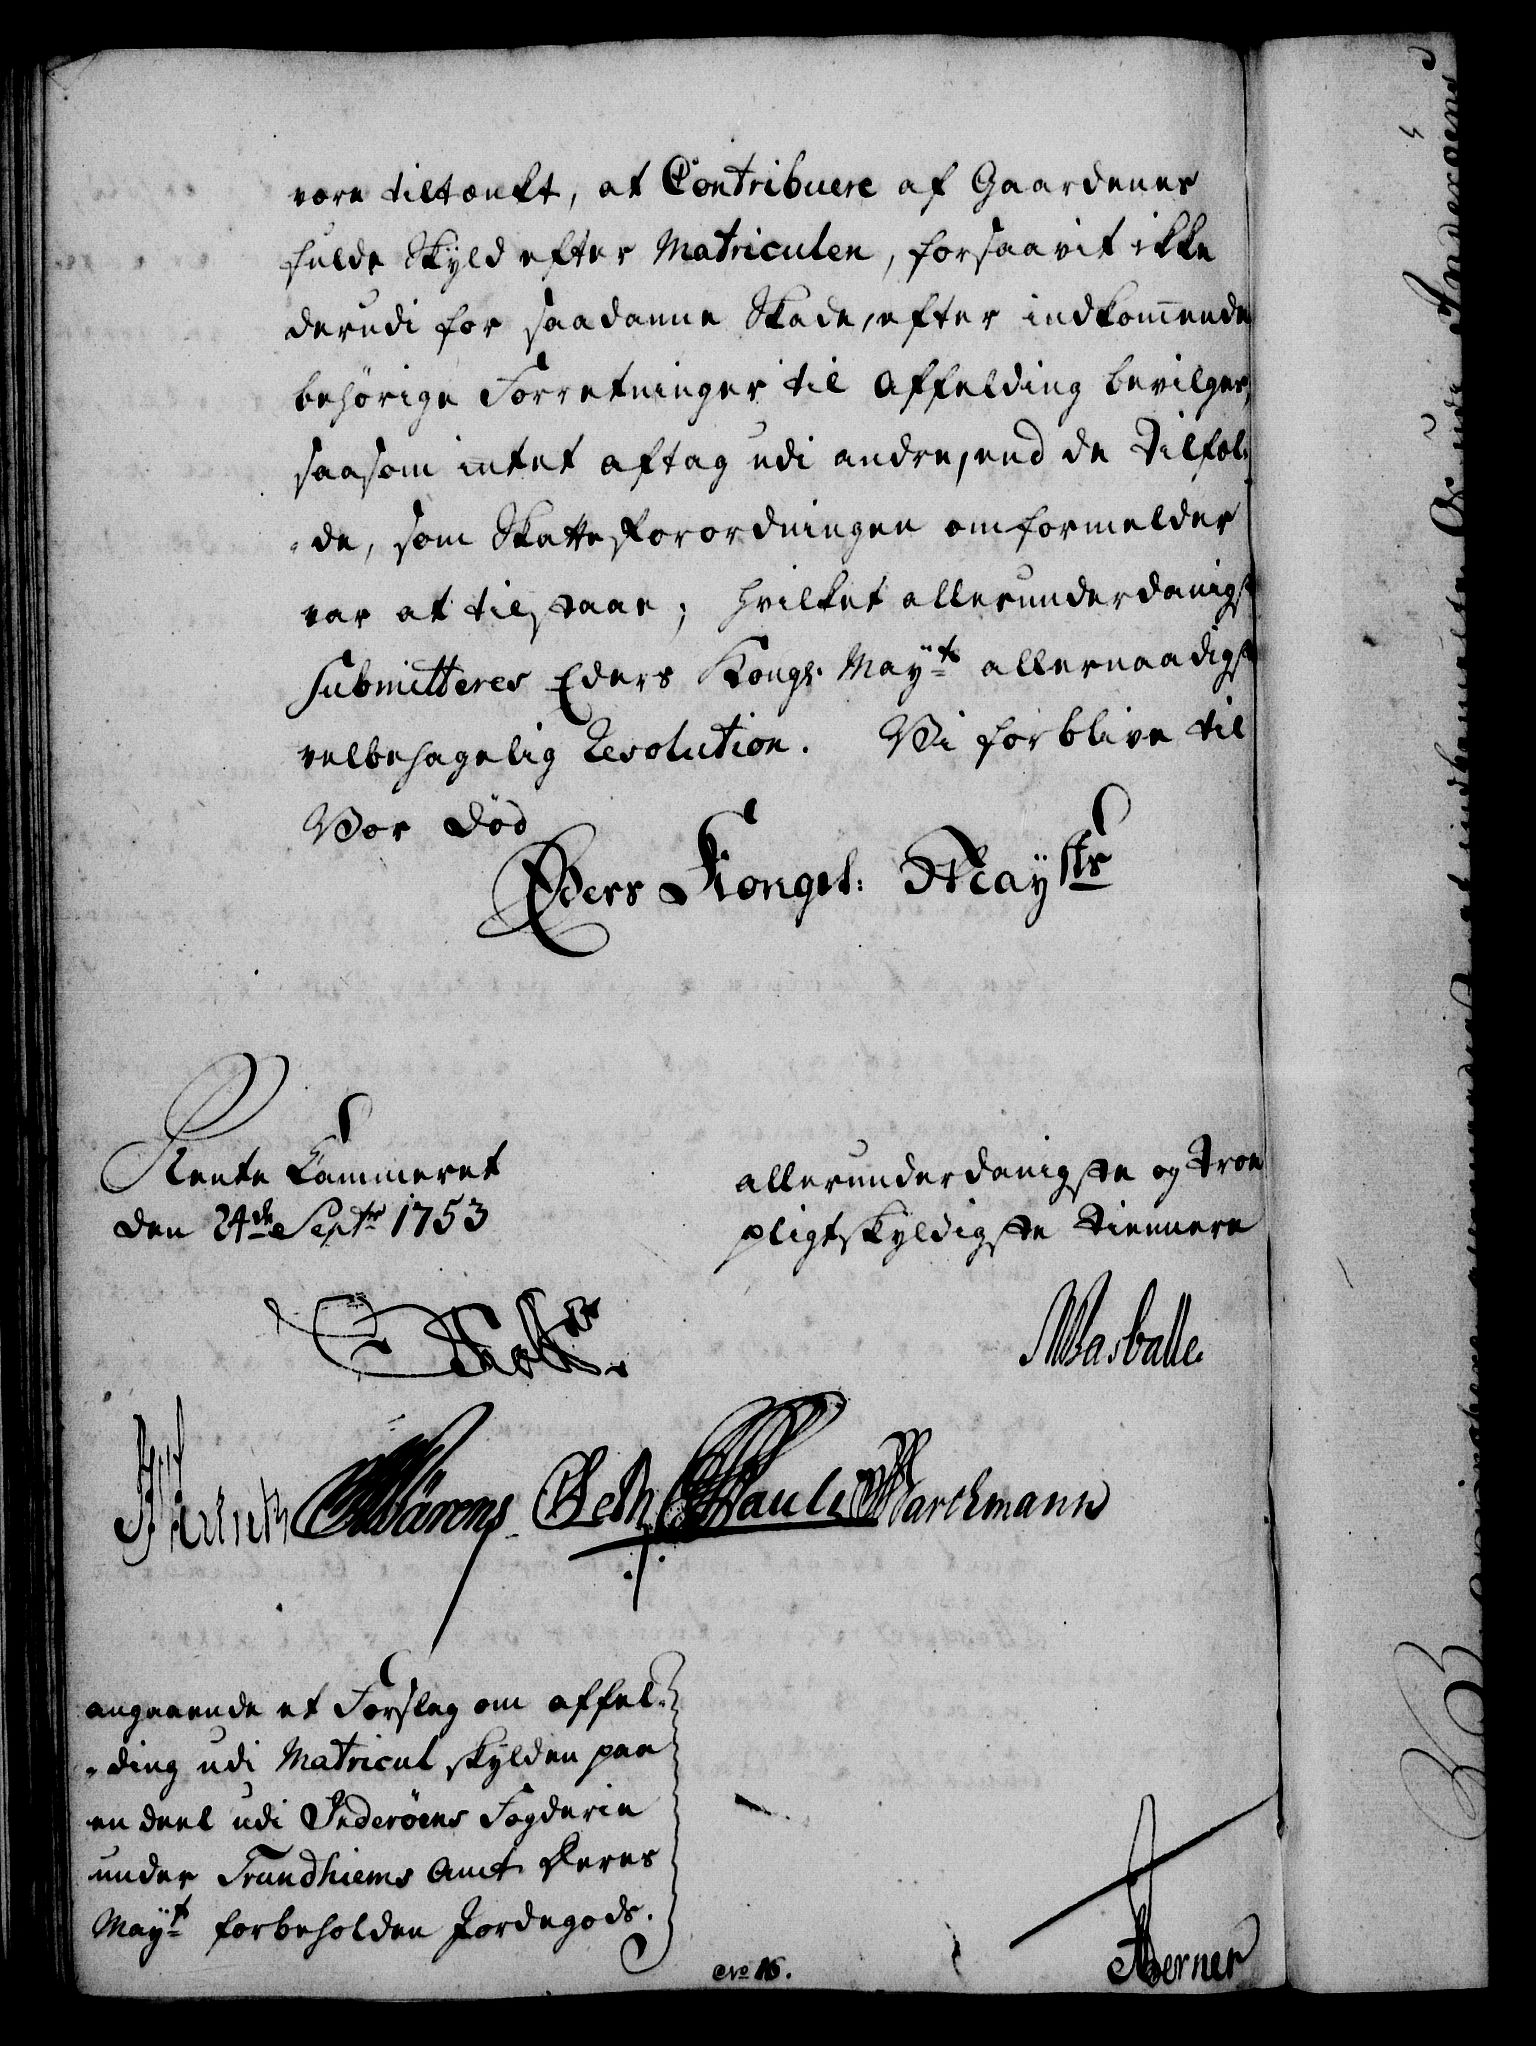 være tiltænkt, at Contribuere af Gaardenes
fulde Skyld efter Matriculen, forsaavit ikke
derudi for saadanne Skade, efter indkom̄ende
behörige Forretninger til Affelding bevilges,
saasom intet aftag udi andre, end de Tilfæl-
-de, som Skatteforordningen omformelder
var at tilstaae; hvilket allerunderdanigst
submitteres Eders Kongl. Mayts allernaadigst
velbehagelig Resolution. Vi forblive til
Vor Död
Eders Kongel: Maysts
Rente Kammeret
den 24de Septr 1753
allerunderdanigste og Troe
pligtskyldigste Tiennere
Wasballe.
Wärens Seth Marckmann
angaaende et Forslag om affel-
-ding udi Matricul skylden paa
en deel udi Inderöens Fogderie
under Trundhiems Amt Deres
Mayt forbeholden Jordegods.
No 16.
Berner